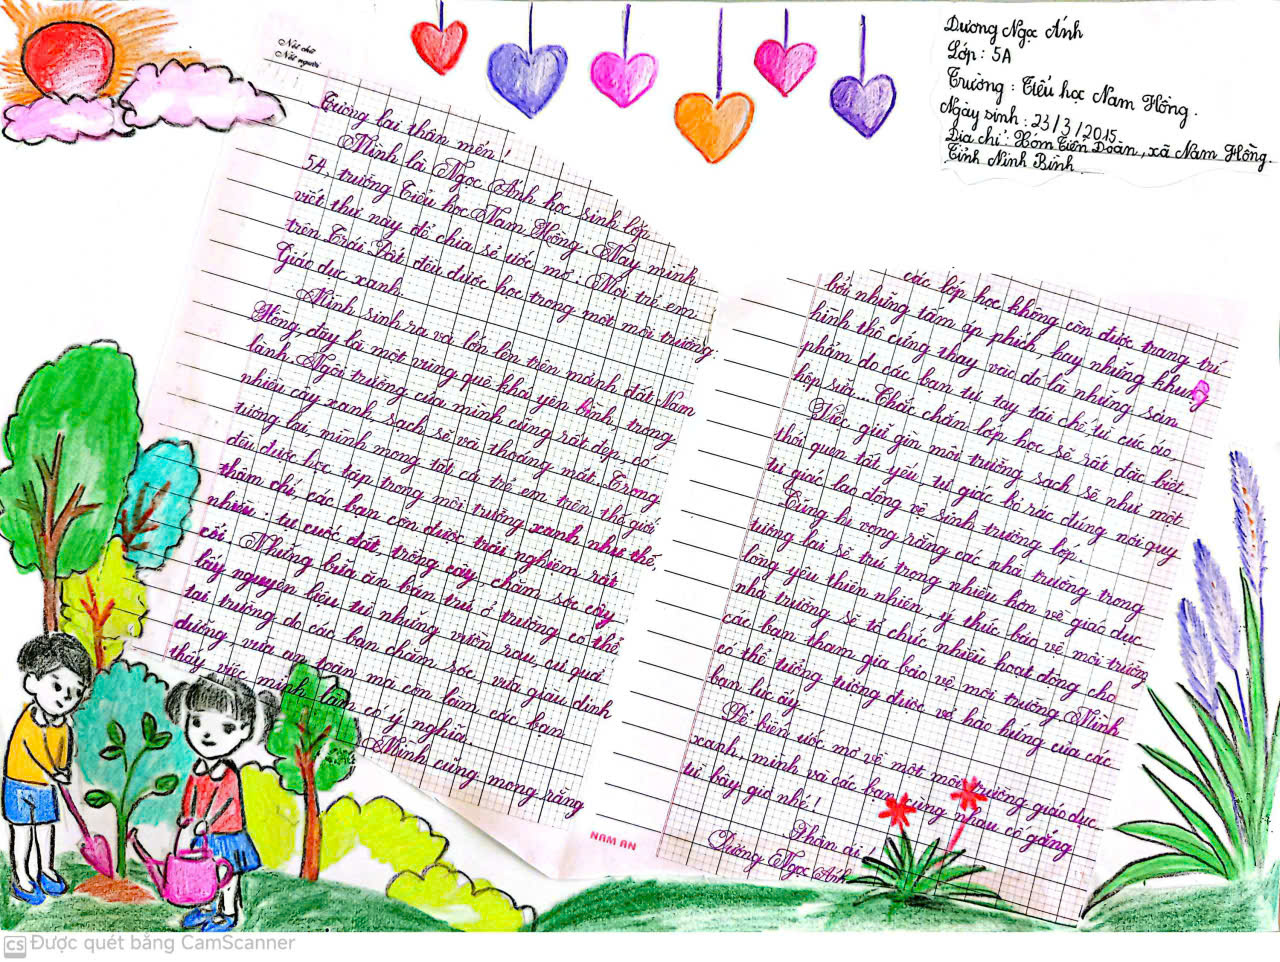 Dương Ngọc Ánh
Lớp : 5A
Trường : Tiểu học Nam Hồng.
Ngày sinh : 23/3/2015
Địa chỉ : Xóm Tiền Đoàn, xã Nam Hồng.
Tỉnh Ninh Bình
Nét chữ
Nết người
Tương lai thân mến !
Mình là Ngọc Ánh học sinh lớp
5A, trường Tiểu học Nam Hồng. Nay mình
viết thư này để chia sẻ ước mơ : Mọi trẻ em
trên Trái Đất đều được học trong một môi trường
Giáo dục xanh.
Mình sinh ra và lớn lên trên mảnh đất Nam
Hồng, đây là một vùng quê khá yên bình, trong
lành. Ngôi trường của mình cũng rất đẹp, có
nhiều cây xanh, sạch sẽ và thoáng mát. Trong
tương lai, mình mong tất cả trẻ em trên thế giới
đều được học tập trong môi trường xanh như thế,
thậm chí các bạn còn được trải nghiệm rất
nhiều : tự cuốc đất, trồng cây, chăm sóc cây
cối. Những bữa ăn bán trú ở trường có thể
lấy nguyên liệu từ những vườn rau, củ quả
tại trường do các bạn chăm sóc, vừa giàu dinh
dưỡng, vừa an toàn mà còn làm các bạn
thấy việc mình làm có ý nghĩa.
Mình cũng mong rằng
các lớp học không còn được trang trí
bởi những tấm áp phích, hay những khung
hình thô cứng thay vào đó là những sản
phẩm do các bạn tự tay tái chế từ cúc áo
hộp sữa... Chắc chắn lớp học sẽ rất đặc biệt.
Việc giữ gìn môi trường sạch sẽ như một
thói quen tất yếu, tự giác bỏ rác đúng nơi quy
tự giác lao động vệ sinh trường lớp.
Cùng hi vọng rằng các nhà trường trong
tương lai sẽ trú trọng nhiều hơn về giáo dục
lòng yêu thiên nhiên, ý thức bảo vệ môi trường
nhà trường sẽ tổ chức nhiều hoạt động cho
các bạn tham gia bảo vệ môi trường. Mình
có thể tưởng tượng được vẻ hào hứng của các
bạn lúc ấy.
Để biến ước mơ về một môi trường giáo dục
xanh, mình và các bạn cùng nhau cố gắng
từ bây giờ nhé !
Thân ái !
Dương Ngọc Ánh
NAM AN
CS Được quét bằng CamScanner